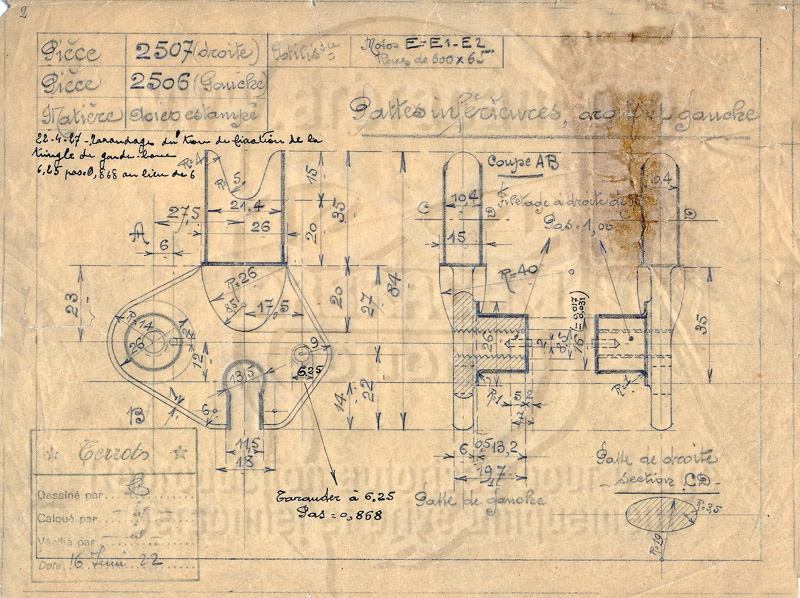 2
Pièce 2507 (droite)
Motos E-E1-E2
Roues de 600 x 65
Pièce 2506 (Gauche)
Matière Acier estampé
Pattes inférieures, gauche
22-4-27 - Taraudage du trou de fixation de la
tringle de garde-boue
6,25 pas 0,868 au lieu de 6
Coupe AB
Filetage à droite
Pas = 1,00
R=4
R=5
15
35
20
27,5
21,4
26
A
6
10,4
C
D
15
R=26
R=40
23
35
17,5
20
27
84
R=14
26
12
9
6.25
13,5
14
22
B
6
11,5
18
26
16
35
R=1
5
2
6
0,5
13,2
19,7
Tarauder à 6.25
Pas = 0,868
Patte de gauche
Patte de droite
- Section CD -
R=3,5
R=19
Terrots
Dessiné par
Calqué par
Vérifié par
Date. 16 Juin 22